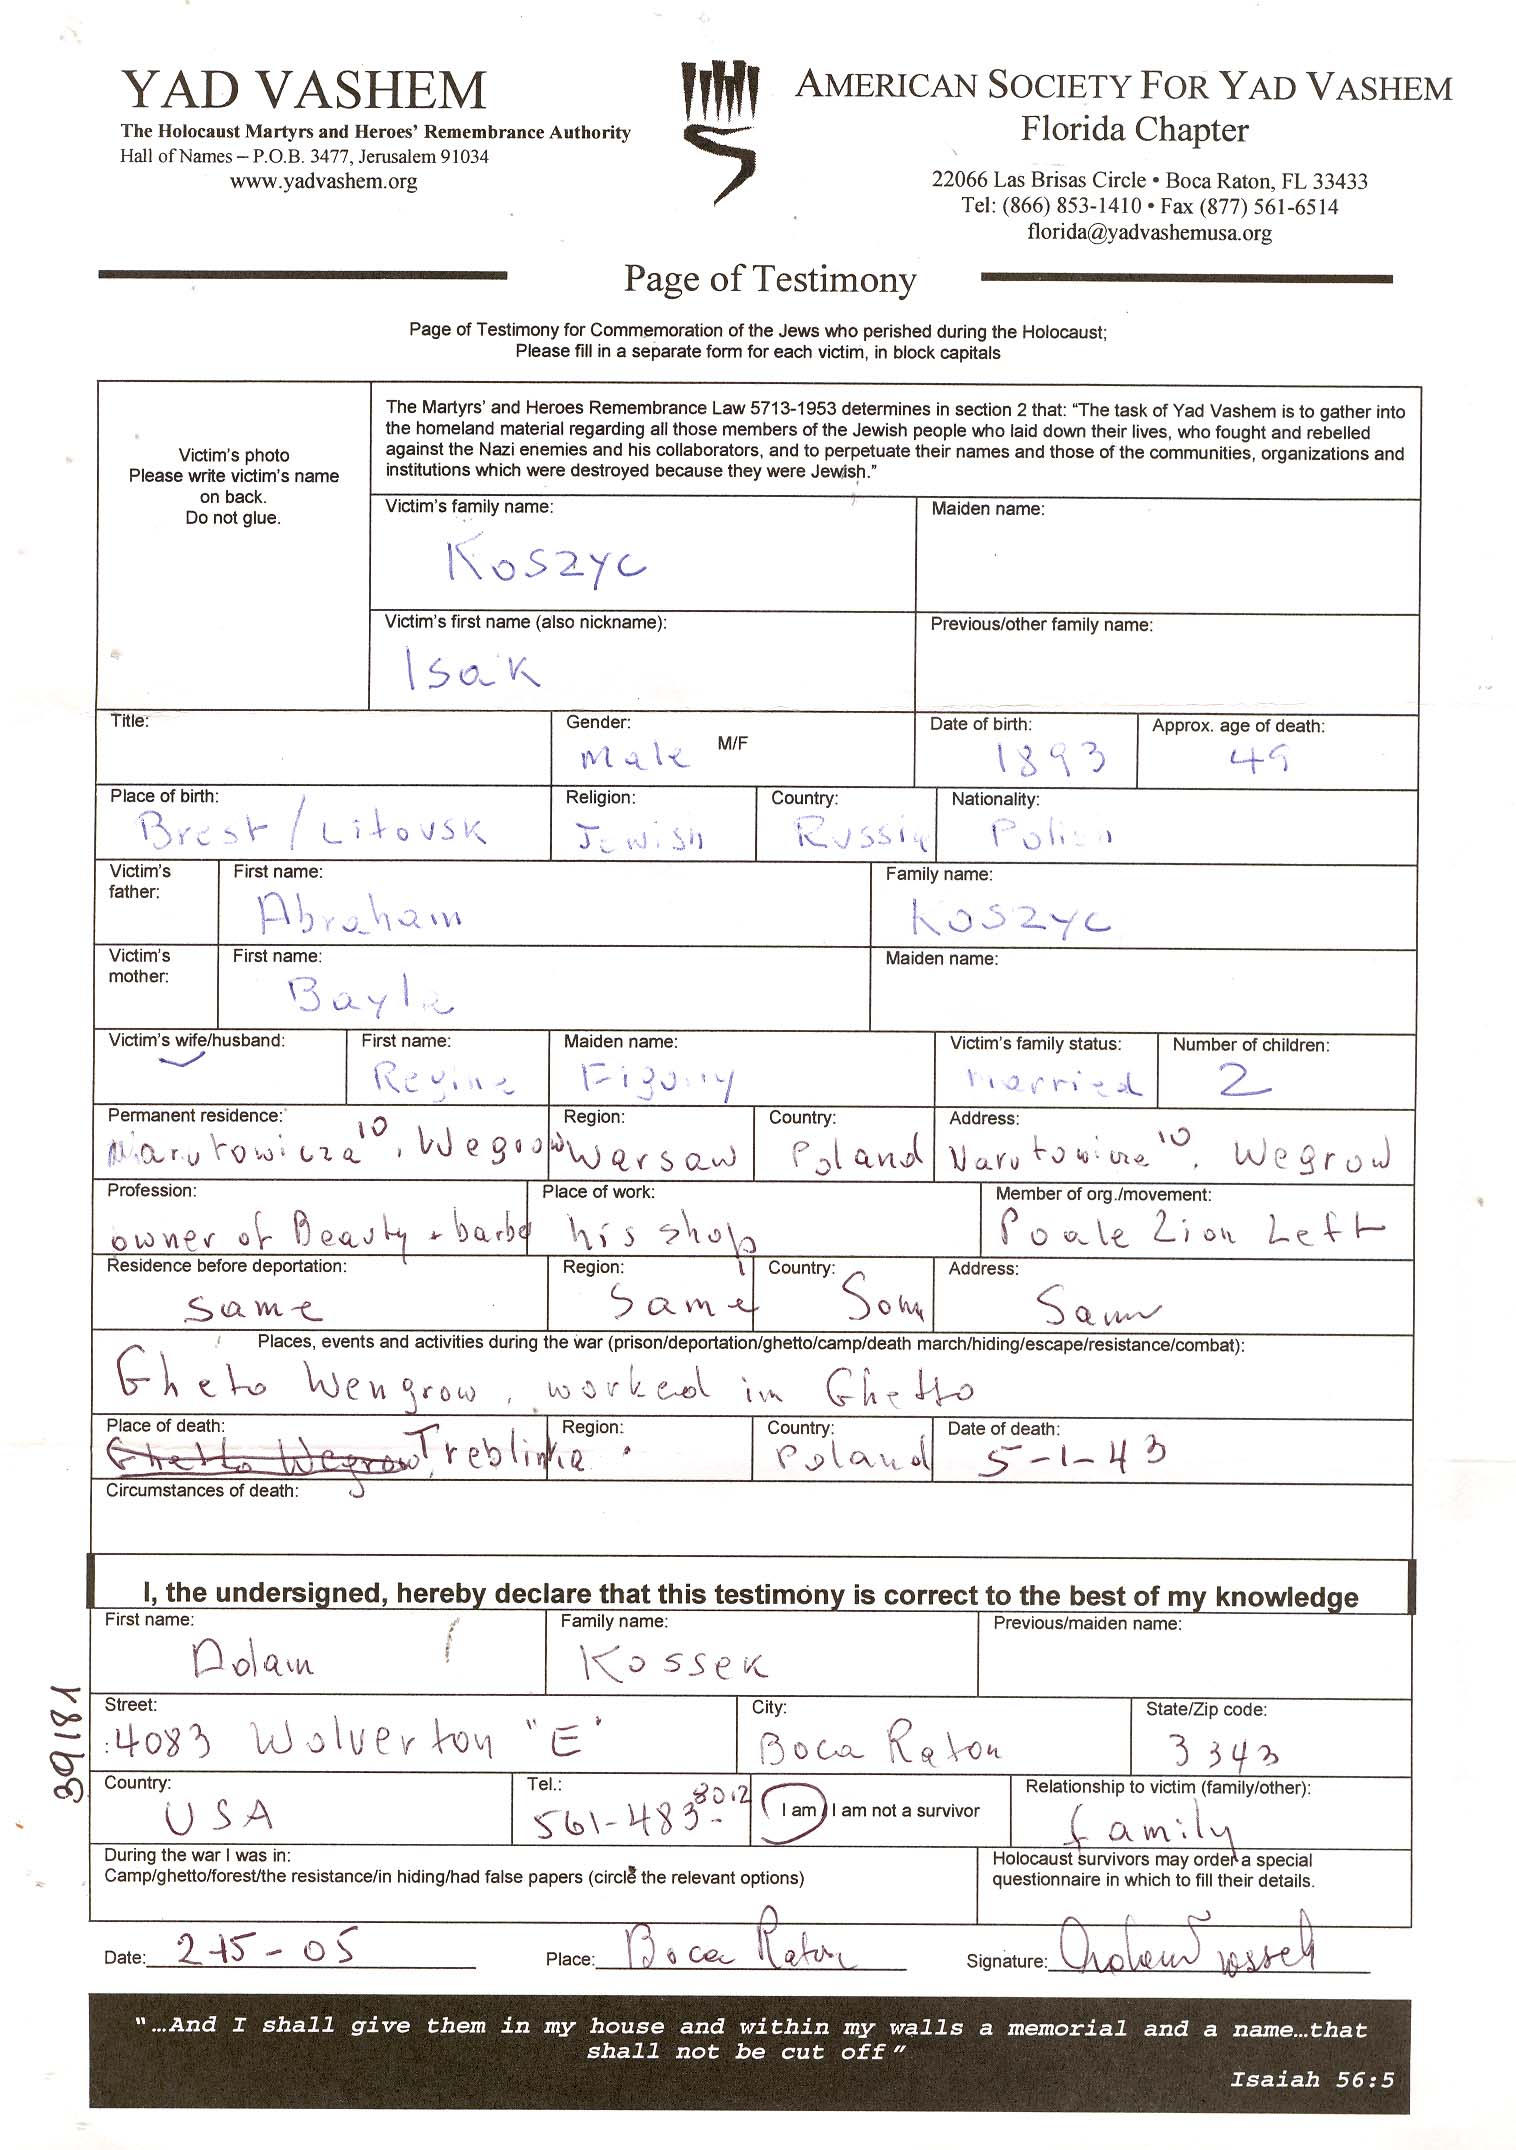 YAD VASHEM
The Holocaust Martyrs and Heroes' Remembrance Authority
Hall of Names – P.O.B. 3477, Jerusalem 91034
www.yadvashem.org
AMERICAN SOCIETY FOR YAD VASHEM
Florida Chapter
22066 Las Brisas Circle • Boca Raton, FL 33433
Tel: (866) 853-1410 • Fax (877) 561-6514
florida@yadvashemusa.org
Page of Testimony
Page of Testimony for Commemoration of the Jews who perished during the Holocaust;
Please fill in a separate form for each victim, in block capitals
Victim's photo
Please write victim's name
on back.
Do not glue.
The Martyrs' and Heroes Remembrance Law 5713-1953 determines in section 2 that: "The task of Yad Vashem is to gather into
the homeland material regarding all those members of the Jewish people who laid down their lives, who fought and rebelled
against the Nazi enemies and his collaborators, and to perpetuate their names and those of the communities, organizations and
institutions which were destroyed because they were Jewish."
Victim's family name: Maiden name:
Koszyc
Victim's first name (also nickname): Previous/other family name:
Isak
Title: Gender: M/F Date of birth: Approx. age of death:
Male 1893 49
Place of birth: Religion: Country: Nationality:
Brest/Litovsk Jewish Russia
Victim's father: First name: Family name:
Abraham Koszyc
Victim's mother: First name: Maiden name:
Bayla
Victim's wife/husband: First name: Maiden name: Victim's family status: Number of children:
Regina married 2
Permanent residence: Region: Country: Address:
Narutowicza 10, Wegrow Warsaw Poland 10, Wegrow
Profession: Place of work: Member of org./movement:
owner of Beauty + barber his shop Poale Zion Left
Residence before deportation: Region: Country: Address:
same Same Same Same
Places, events and activities during the war (prison/deportation/ghetto/camp/death march/hiding/escape/resistance/combat):
Gheto Wengrow, worked in Ghetto
Place of death: Region: Country: Date of death:
Ghetto Wegrow, Treblinka Poland 5-1-43
Circumstances of death:
I, the undersigned, hereby declare that this testimony is correct to the best of my knowledge
First name: Family name: Previous/maiden name:
Adam Kossek
Street: City: State/Zip code:
4083 Wolverton "E" Boca Raton 3343
Country: Tel.: I am / I am not a survivor Relationship to victim (family/other):
USA 561-483-8012 family
During the war I was in:
Camp/ghetto/forest/the resistance/in hiding/had false papers (circle the relevant options)
Holocaust survivors may order a special
questionnaire in which to fill their details.
Date: 2-15-05 Place: Boca Raton Signature:
39181
"…And I shall give them in my house and within my walls a memorial and a name…that
shall not be cut off"
Isaiah 56:5